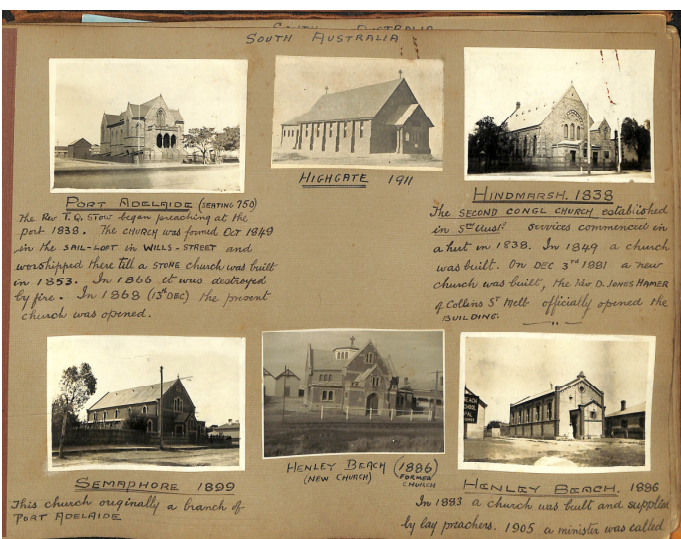 SOUTH AUSTRALIA
SOUTH AUSTRALIA
PORT ADELAIDE (SEATING 750)
The Rev. T. Q. STOW began preaching at the
port 1838. The CHURCH was formed Oct 1849
in the SAIL-LOFT in WILLS-STREET and
worshipped there till a STONE church was built
in 1853. In 1866 it was destroyed
by fire. In 1868 (13th DEC) the present
church was opened.
HIGHGATE 1911
HINDMARSH. 1838
The SECOND CONGL CHURCH established
in Sth Austl. Services commenced in
a hut in 1838. In 1849 a church
was built. On DEC 3rd 1881 a new
church was built, the Rev D. JONES HAMER
of Collins St Melb officially opened the
BUILDING.
SEMAPHORE 1899
This church originally a branch of
PORT ADELAIDE
HENLEY BEACH (1886)
(NEW CHURCH) FORMER
CHURCH
BEACH
SCHOOL
HENLEY BEACH. 1886
In 1883 a church was built and supplied
by lay preachers. 1905 a minister was called